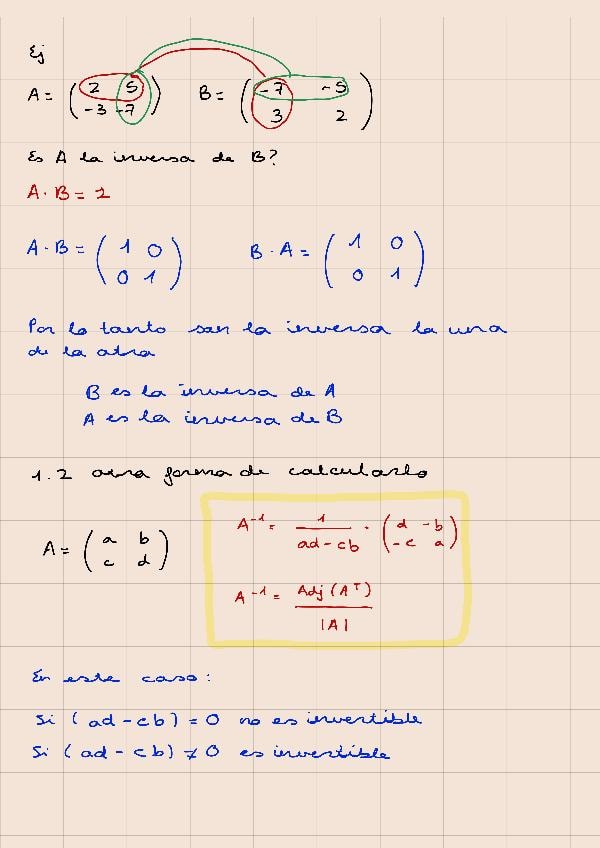 Ej
A = ( 2 5 -3 -7 ) B = ( -7 -5 3 2 )
Es A la inversa de B?
A · B = 1
A · B = ( 1 0 0 1 ) B · A = ( 1 0 0 1 )
Por lo tanto son la inversa la una
de la otra
B es la inversa de A
A es la inversa de B
1.2 otra forma de calcularlo
A = ( a b c d )
A⁻¹ = 1 / ad - cb · ( d -b -c a )
A⁻¹ = Adj (Aᵀ) / |A|
En este caso:
Si (ad - cb) = 0 no es invertible
Si (ad - cb) ≠ 0 es invertible